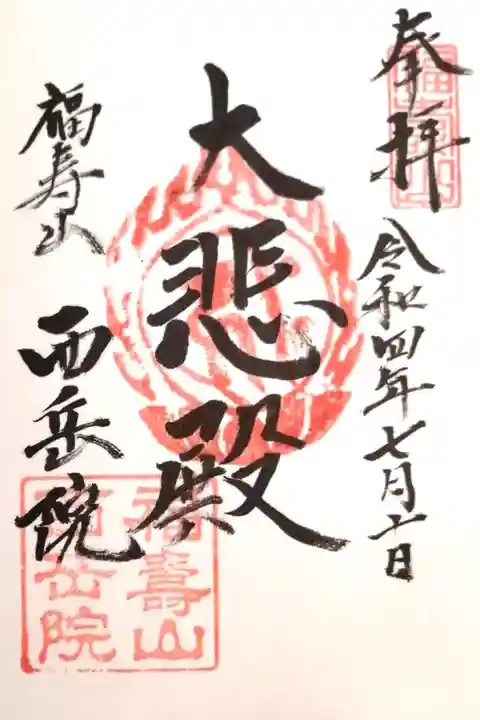 奉拝
福壽山
令和四年七月十日
大悲殿
福寿山
西岳院
福壽山
西岳院